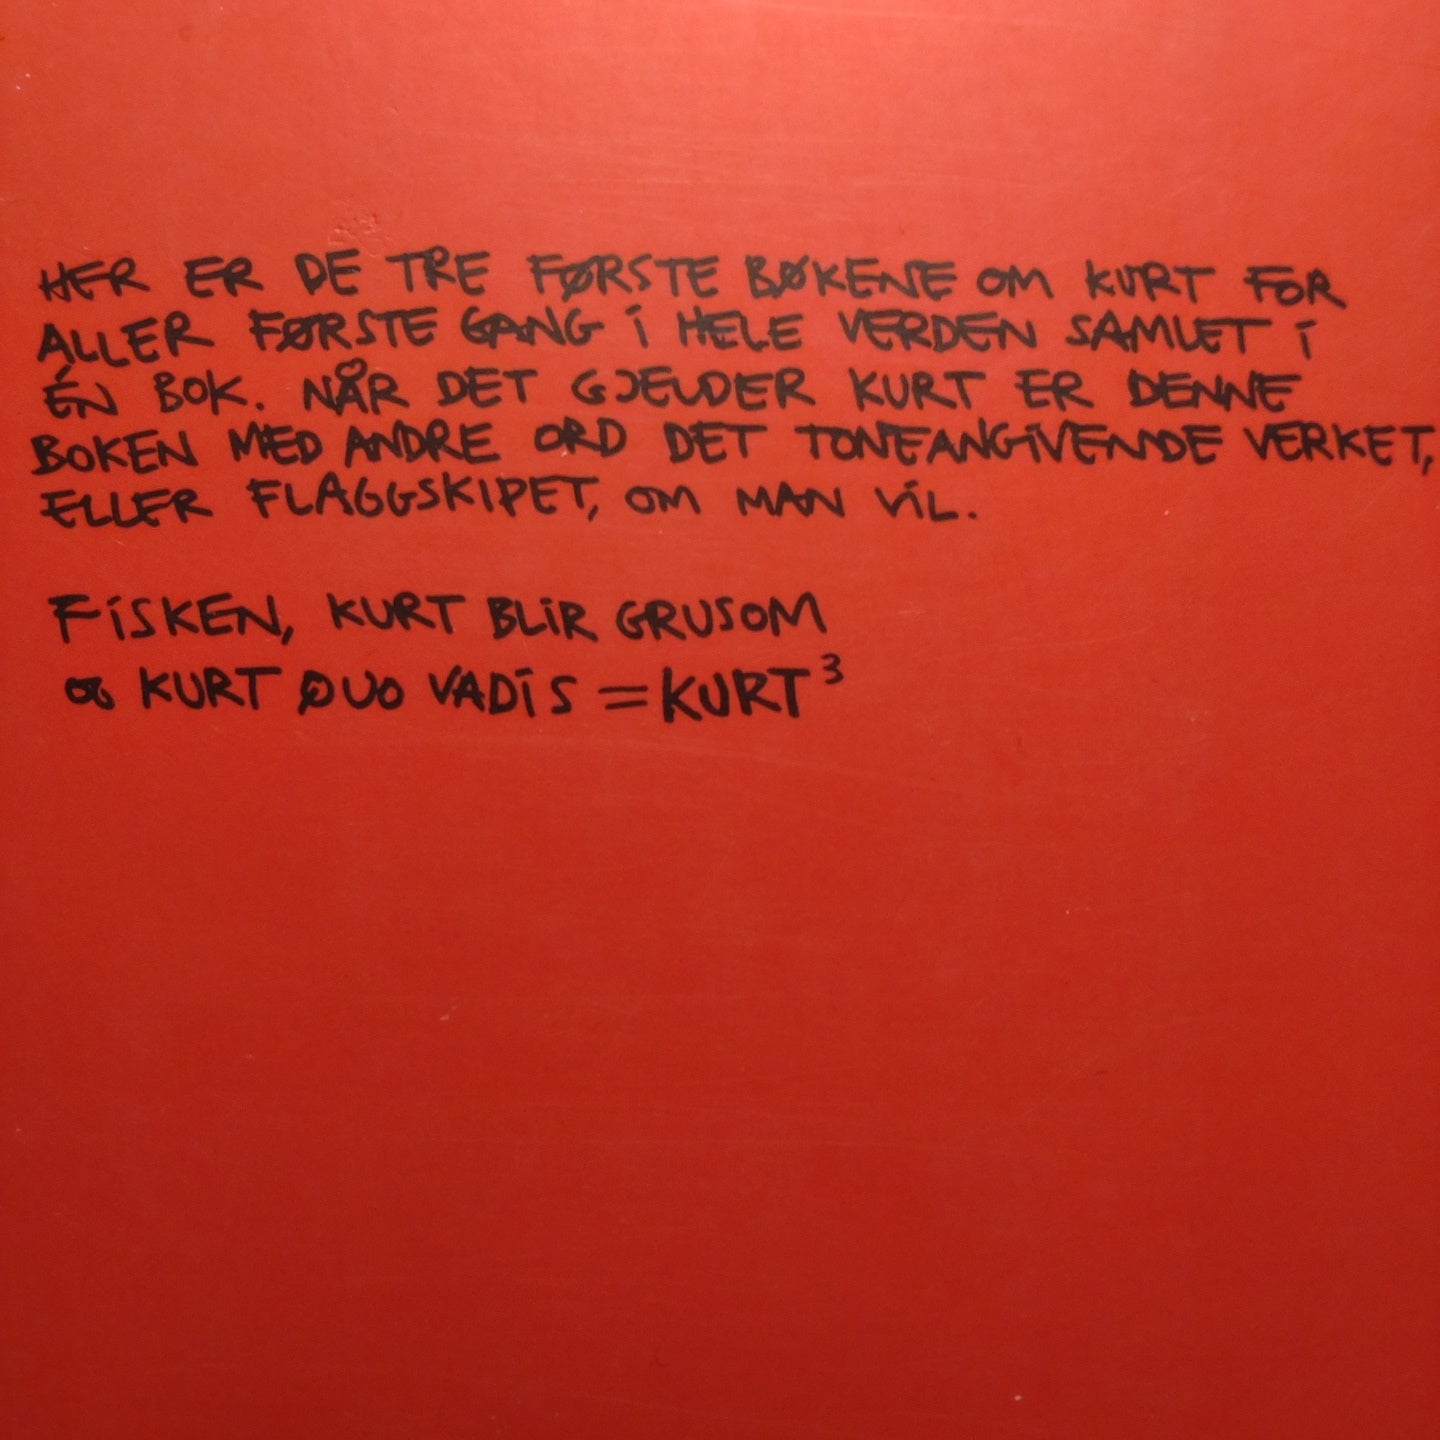 HER ER DE TRE FØRSTE BØKENE OM KURT FOR
ALLER FØRSTE GANG I HELE VERDEN SAMLET I
ÉN BOK. NÅR DET GJELDER KURT ER DENNE
BOKEN MED ANDRE ORD DET TONEANGIVENDE VERKET,
ELLER FLAGGSKIPET, OM MAN VIL.
FISKEN, KURT BLIR GRUSOM
OG KURT QUO VADIS = KURT³